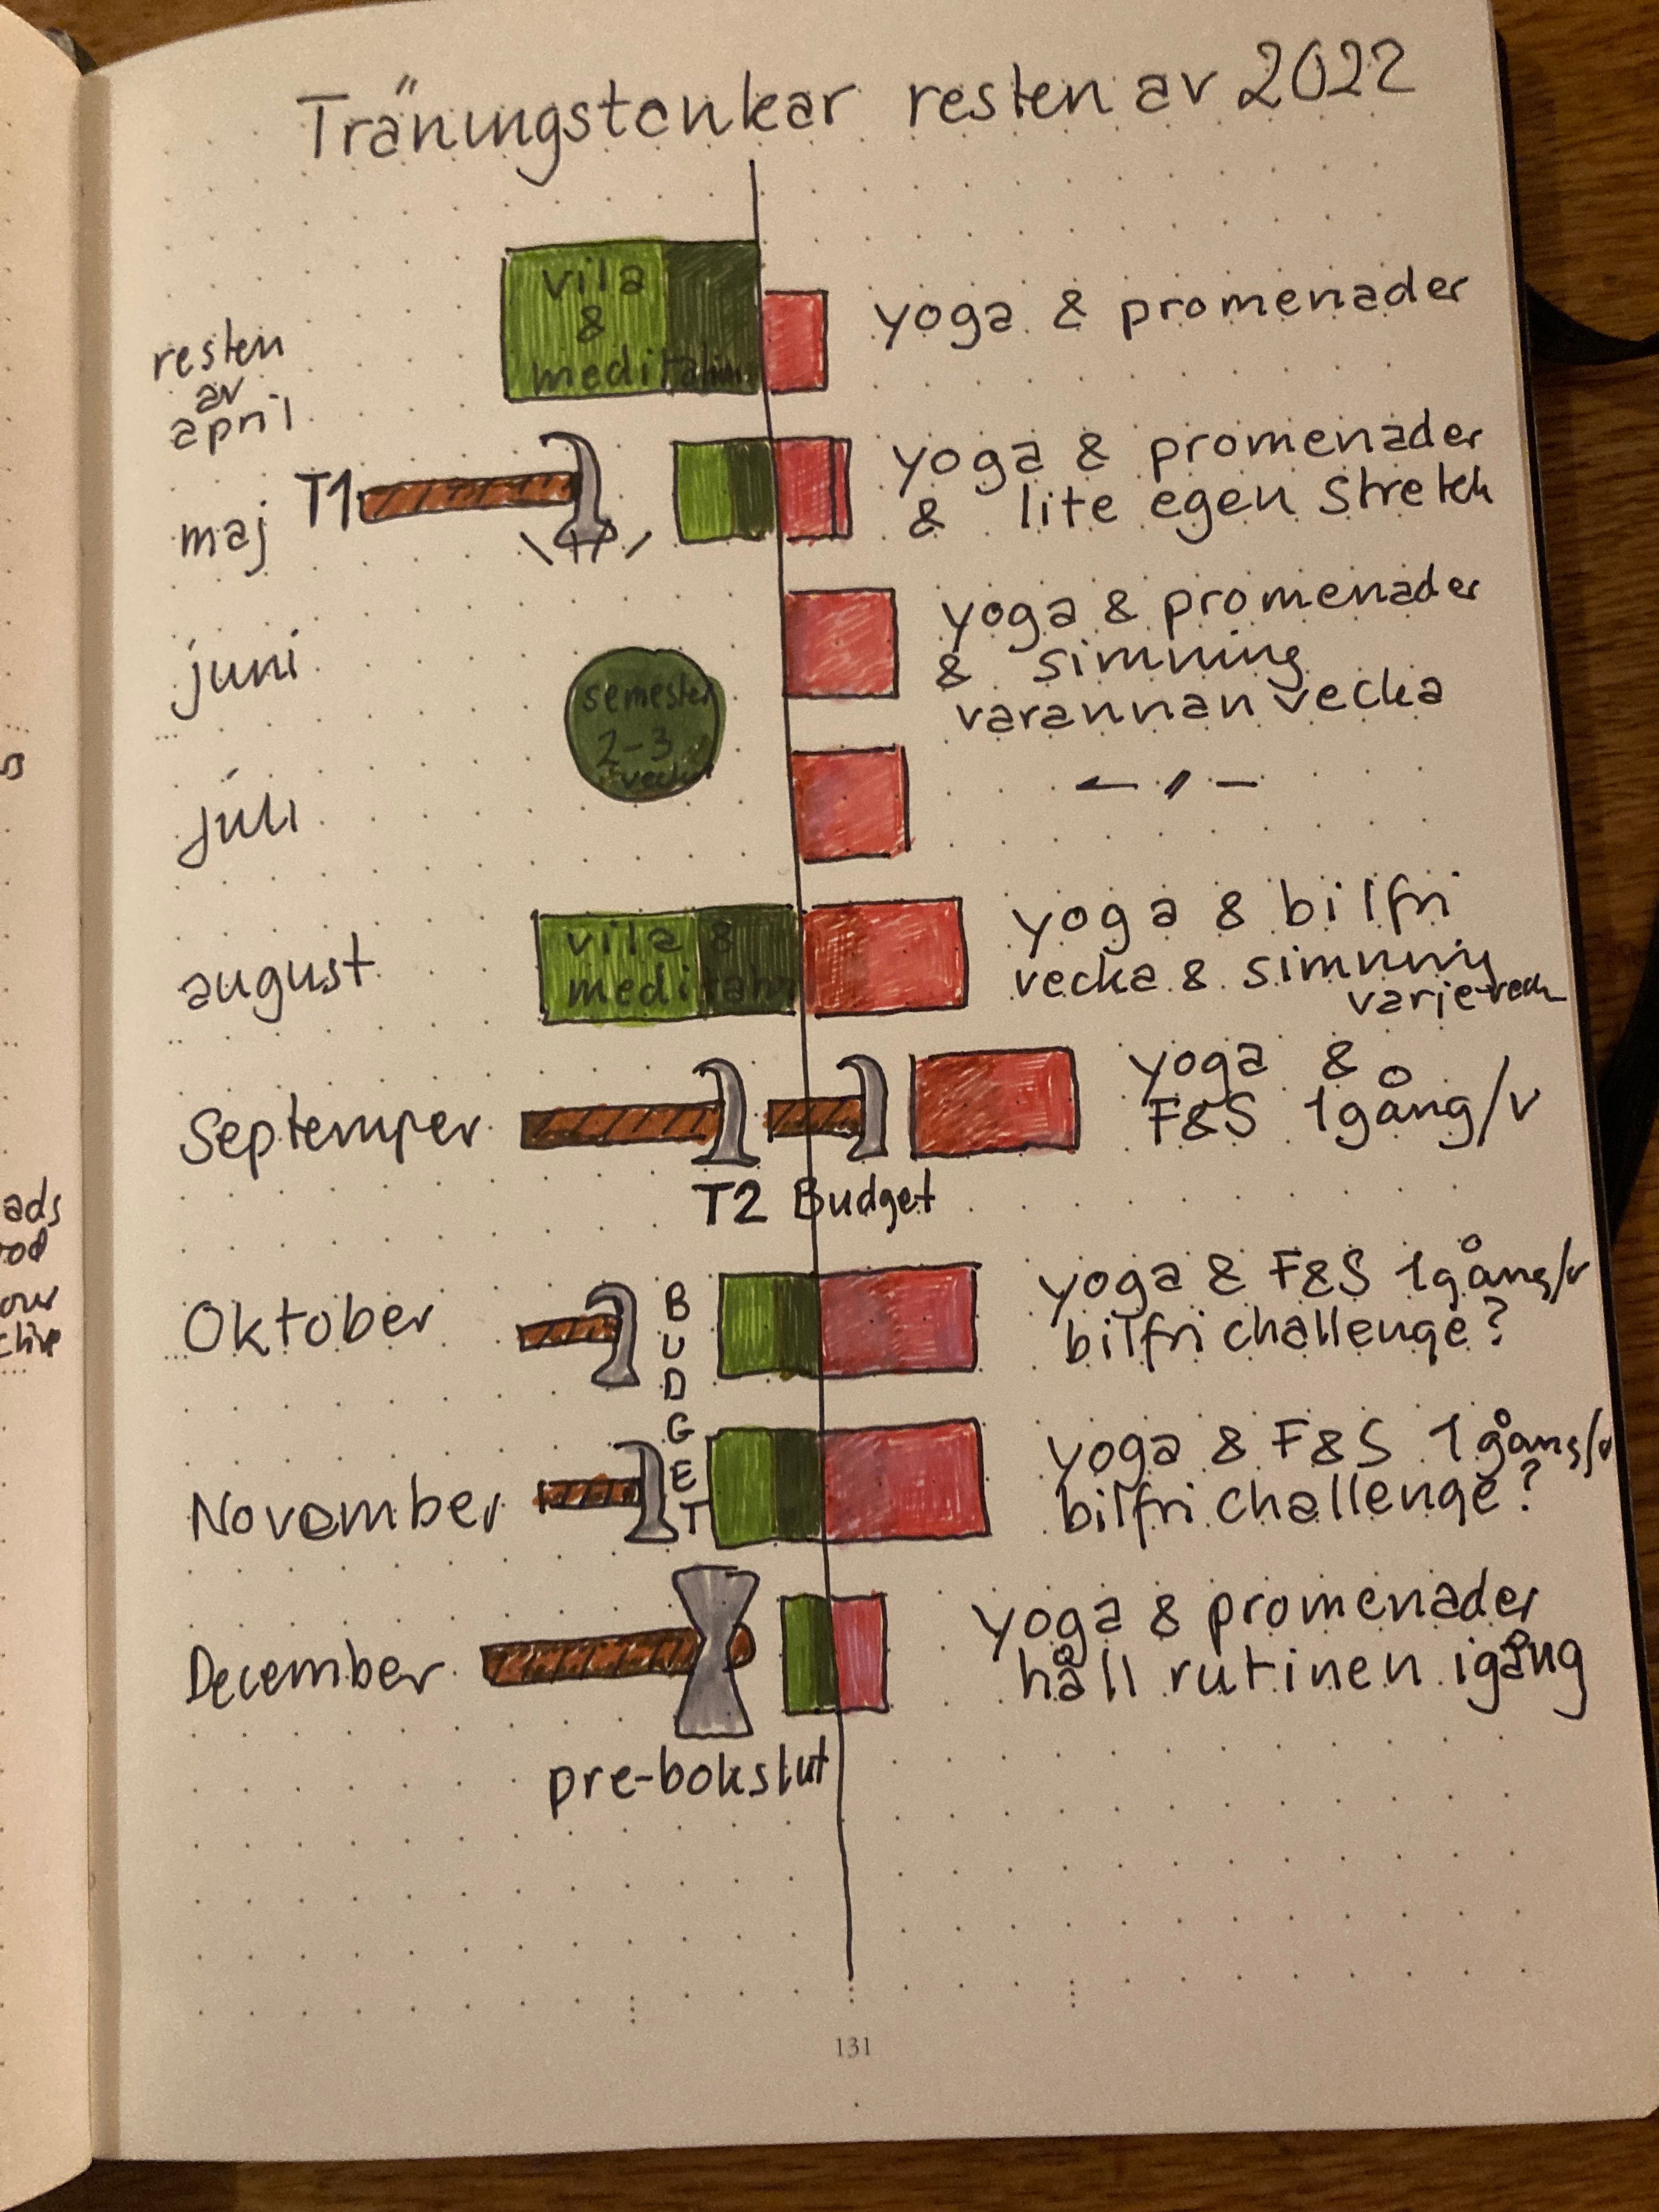 Träningstankar resten av 2022
resten
av
april
vila
&
meditation
yoga & promenader
maj
T1
yoga & promenader
& lite egen stretch
juni
semester
2-3
veckor
yoga & promenader
& simning
varannan vecka
juli
— 〃 —
august
vila &
meditation
yoga & bilfri
vecka & simning
varje veck
September
T2 Budget
yoga &
F&S 1gång/v
Oktober
BUDGET
yoga & F&S 1gång/v
bilfri challenge?
November
yoga & F&S 1gång/v
bilfri challenge?
December
pre-bokslut
yoga & promenader
håll rutinen igång
131
ads